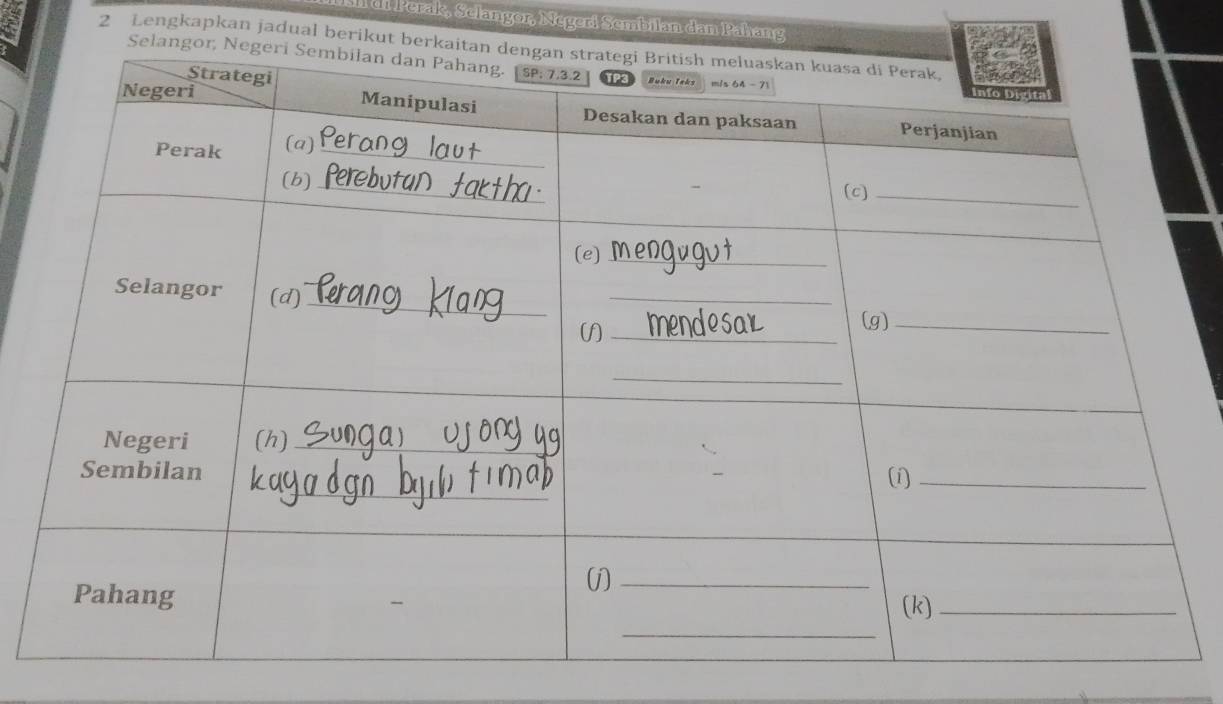 di Perak, Selangor, Negeri Sembilan dan Pahang
2 Lengkapkan jadual berikut berkaitan dengan strategi British meluaskan kuasa di Perak,
Selangor, Negeri Sembilan dan Pahang. SP: 7.3.2 TP3 Buku Teks m/s 64 - 71
Info Digital
Strategi
Negeri
Manipulasi
Desakan dan paksaan
Perjanjian
Perak
(a) Perang laut
(b) Perebutan taktha.
-
(c)
Selangor
(d) Perang Klang
(e) mengugut
(f) mendesak
(g)
Negeri
Sembilan
(h) Sungai Ujong yg
kaya dgn bijih timah
-
(i)
Pahang
-
(j)
(k)